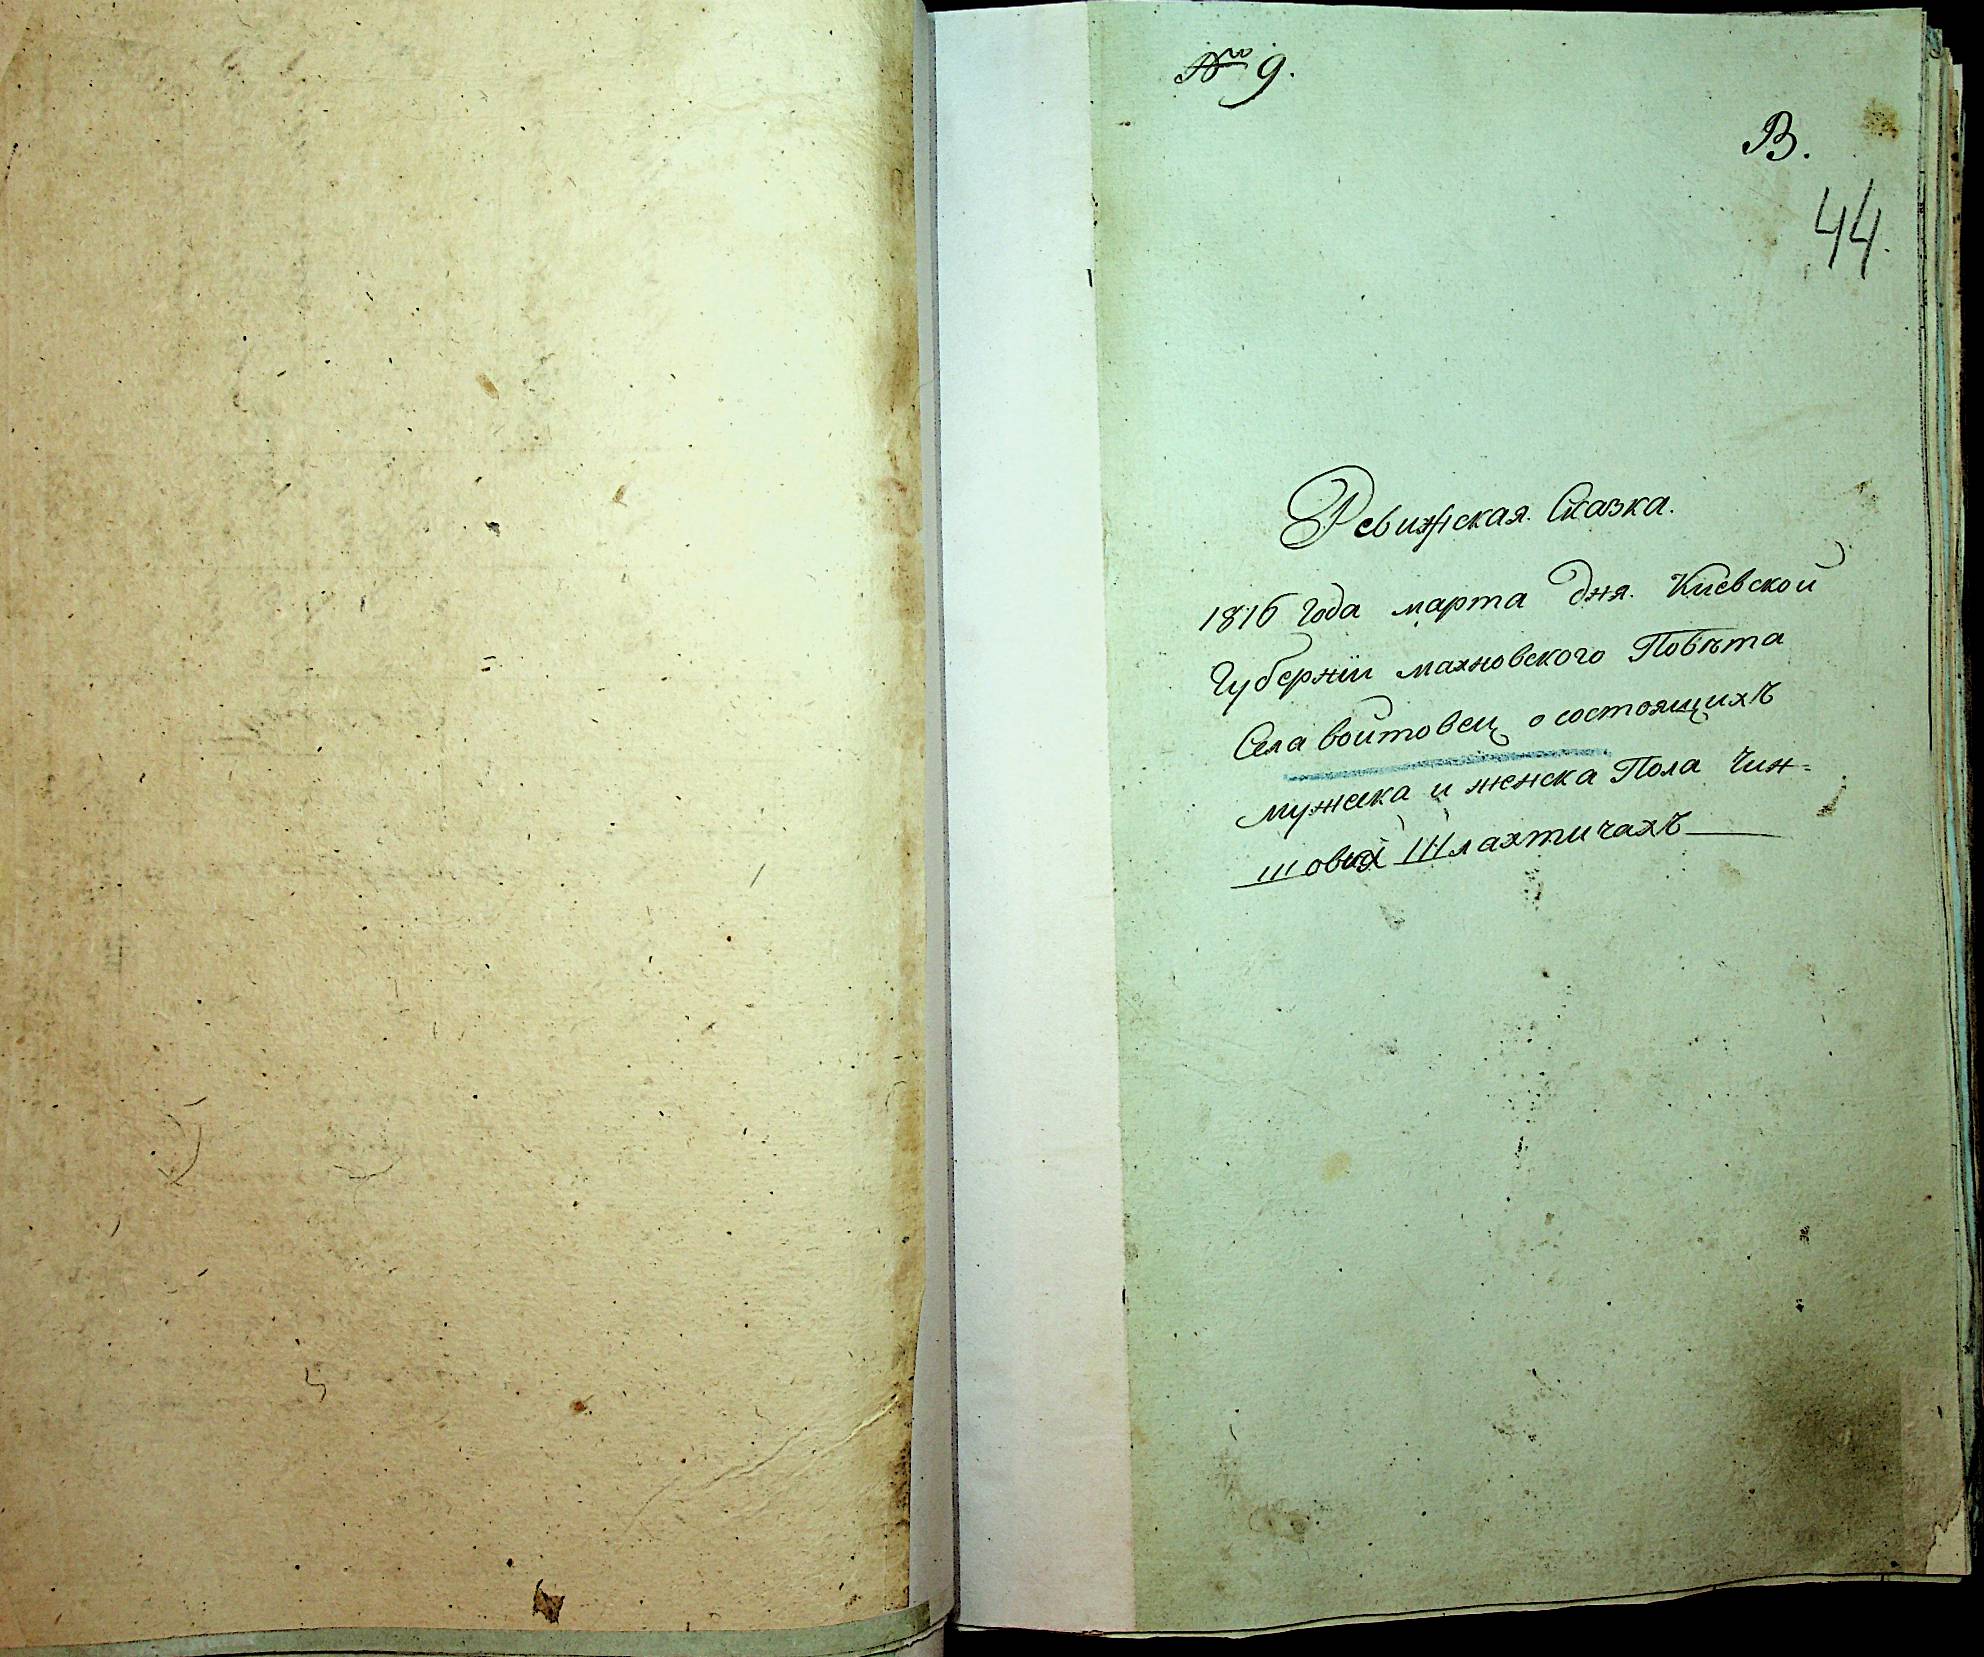 № 9.
В.
44.
Ревижская Сказка.
1816 года марта дня. Киевской
Губернїи махновского Повѣта
Села войтовец о состоящихъ
мужска и женска Пола Чин=
шовых Шлахтичахъ